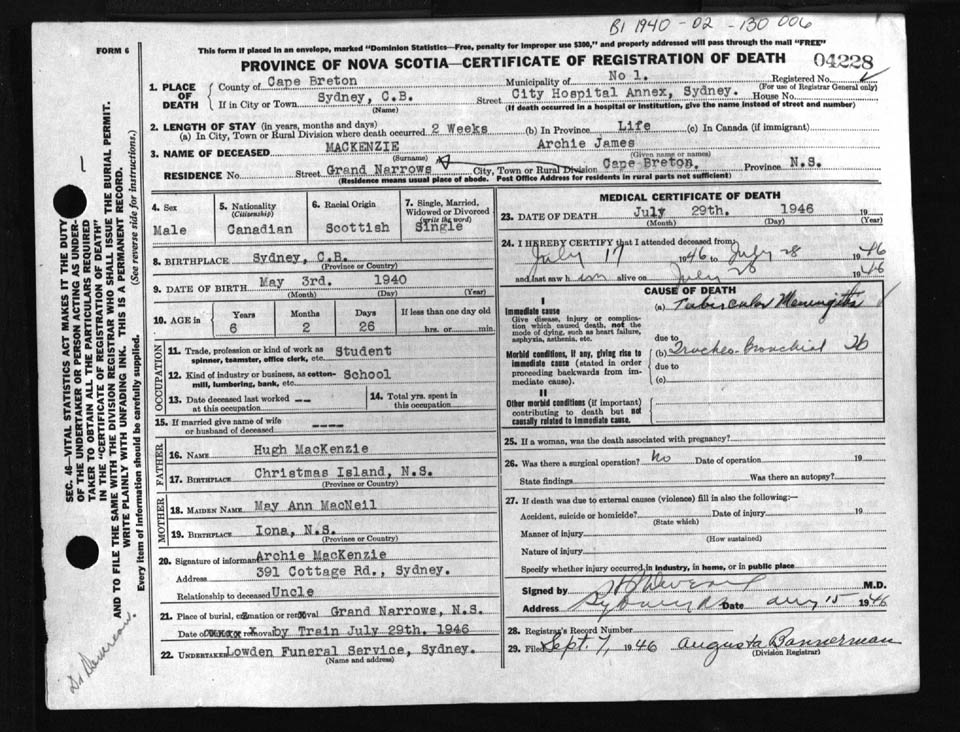 B1 1940 - 02 - 130 006
FORM 6
This form if placed in an envelope, marked "Dominion Statistics—Free, penalty for improper use $300," and properly addressed will pass through the mail "FREE"
PROVINCE OF NOVA SCOTIA—CERTIFICATE OF REGISTRATION OF DEATH 04228
1. PLACE OF DEATH
County of Cape Breton Municipality of No 1. Registered No.
(For use of Registrar General only)
If in City or Town Sydney, C.B. Street City Hospital Annex, Sydney. House No.
(Name) (If death occurred in a hospital or institution, give the name instead of street and number)
2. LENGTH OF STAY (in years, months and days)
(a) In City, Town or Rural Division where death occurred 2 Weeks (b) In Province Life (c) In Canada (if immigrant)
3. NAME OF DECEASED MACKENZIE Archie James
(Surname) (Given name or names)
RESIDENCE No. Street Grand Narrows City, Town or Rural Division Cape Breton Province N.S.
(Residence means usual place of abode. Post Office Address for residents in rural parts not sufficient)
4. Sex
Male
5. Nationality
(Citizenship)
Canadian
6. Racial Origin
Scottish
7. Single, Married, Widowed or Divorced
(write the word)
Single
8. BIRTHPLACE Sydney, C.B.
(Province or Country)
9. DATE OF BIRTH May 3rd. 1940
(Month) (Day) (Year)
10. AGE in Years Months Days If less than one day old
6 2 26 hrs. or min.
OCCUPATION
11. Trade, profession or kind of work as spinner, teamster, office clerk, etc. Student
12. Kind of industry or business, as cotton-mill, lumbering, bank, etc. School
13. Date deceased last worked at this occupation --
14. Total yrs. spent in this occupation
15. If married give name of wife or husband of deceased ----
FATHER
16. NAME Hugh MacKenzie
17. BIRTHPLACE Christmas Island, N.S.
(Province or Country)
MOTHER
18. MAIDEN NAME May Ann MacNeil
19. BIRTHPLACE Iona, N.S.
(Province or Country)
20. Signature of informant Archie MacKenzie
Address 391 Cottage Rd., Sydney.
Relationship to deceased Uncle
21. Place of burial, cremation or removal Grand Narrows, N.S.
Date of removal by Train July 29th. 1946
22. UNDERTAKER Lowden Funeral Service, Sydney.
(Name and address)
MEDICAL CERTIFICATE OF DEATH
23. DATE OF DEATH July 29th. 1946 19
(Month) (Day) (Year)
24. I HEREBY CERTIFY that I attended deceased from
July 17 1946 to July 28 1946
and last saw him alive on July 28 1946
CAUSE OF DEATH
I
Immediate cause
Give disease, injury or complication which caused death, not the mode of dying, such as heart failure, asphyxia, asthenia, etc.
(a) Tubercular Meningitis
due to
Morbid conditions, if any, giving rise to immediate cause (stated in order proceeding backwards from immediate cause).
(b) Tracheo-Bronchial Tb
due to
(c)
II
Other morbid conditions (if important) contributing to death but not causally related to immediate cause.
25. If a woman, was the death associated with pregnancy?
26. Was there a surgical operation? No Date of operation 19
State findings Was there an autopsy?
27. If death was due to external causes (violence) fill in also the following:—
Accident, suicide or homicide? Date of injury 19
(State which)
Manner of injury
(How sustained)
Nature of injury
Specify whether injury occurred in industry, in home, or in public place
Signed by M.D.
Address Sydney NS Date Aug 15 1946
28. Registrar's Record Number
29. Filed Sept. 7, 1946 Augusta Bannerman
(Division Registrar)
SEC. 46—VITAL STATISTICS ACT MAKES IT THE DUTY
OF THE UNDERTAKER OR PERSON ACTING AS UNDER-
TAKER TO OBTAIN ALL THE PARTICULARS REQUIRED
IN THE "CERTIFICATE OF REGISTRATION OF DEATH"
AND TO FILE THE SAME WITH THE DIVISION REGISTRAR WHO SHALL ISSUE THE BURIAL PERMIT.
WRITE PLAINLY WITH UNFADING INK. THIS IS A PERMANENT RECORD.
Every item of information should be carefully supplied. (See reverse side for instructions.)
Dr